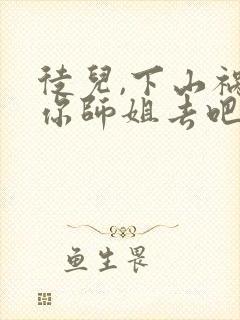 徒兒,下山祸
你师姐去吧
鱼生畏